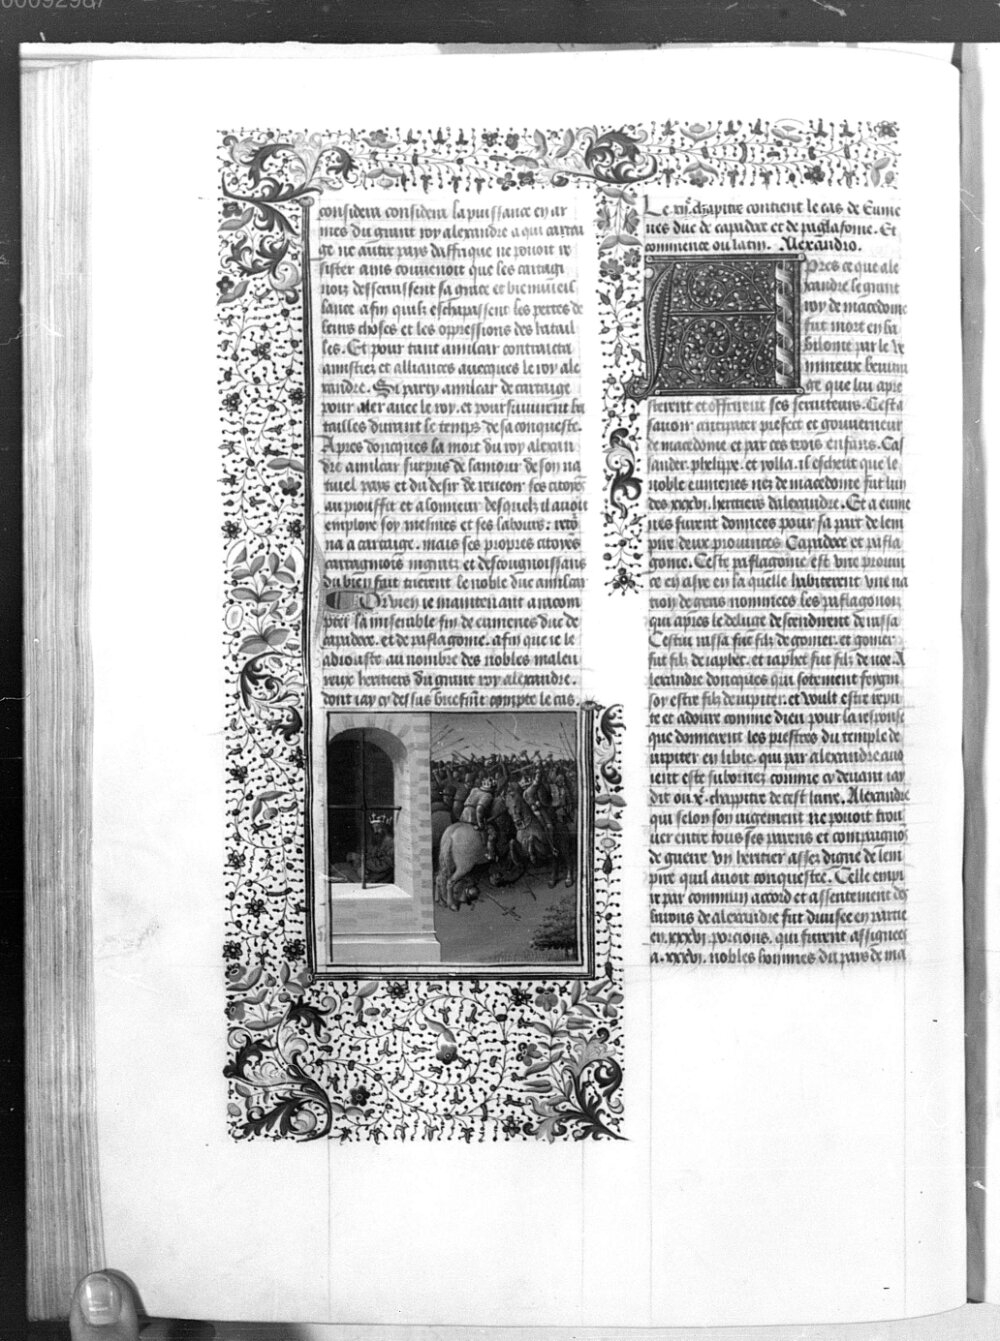 considera la puissance en ar
mes du grant roy alexandre a qui carta
ge ne autre pays daffrique ne pouoit re
sister ains couuenoit que les cartagi
nois desseruissent sa grace et bienueil
lance afin quilz eschapassent les pertes de
leurs choses et les oppressions des batail
les. Et pour tant amilcar contraicta
amistiez et alliances auecques le roy ale
xandre. Si party amilcar de cartaige
pour aler auec le roy. et poursuiuirent ba
tailles durant le temps de sa conqueste.
Apres doncques la mort du roy alexan
dre amilcar surpris de lamour de son na
turel pays et du desir de veeoir ses citoyens
au prouffit et a lonneur desquelz il auoit
employe soy mesmes et ses labours: retour
na a cartaige. mais ses propres citoyens
cartaginois ingratz et descongnoissans
du bien fait tuerent le noble duc amilcar
Or vien ie maintenant a racom
pter la miserable fin de eumenes duc de
capadoce. et de paflagonie. afin que ie le
adiouste au nombre des nobles maleu
reux heritiers du grant roy alexandre.
dont iay cy dessus briefment compte le cas.
Le xii. chapitre contient le cas de Eume
nes duc de capadoce et de paflagonie. Et
commence ou latin. Alexandro.
Apres ce que ale
xandre le grant
roy de macedoine
fut mort en ba
bilonie par le ve
nimeux beuura
ge que lui apre
sterent et offrirent ses seruiteurs. Cest a
sauoir antipater prefect et gouuerneur
de macedoine et par ces trois enfans. Cas
sander. phelippe. et yolla. il escheut que le
noble eumenes nez de macedoine fut lun
des xxxvi. heritiers dalexandre. Et a eume
nes furent donnees pour sa part de lem
pire deux prouinces Capadoce et pafla
gonie. Ceste paflagonie est vne prouin
ce en asye en la quelle habiterent vne na
tion de gens nommees les paflagonois
qui apres le deluge descendirent de raffa
Cestui raffa fut filz de gomer. et gomer
fut filz de iaphet. et iaphet fut filz de noe. A
lexandre doncques qui sotement feignit
soy estre filz de iupiter. et voult estre repu
te et adoure comme dieu pour la response
que donnerent les prestres du temple de
iupiter en libie. qui par alexandre auo
ient este subornez comme cy deuant iay
dit ou xe. chappitre de cest liure. Alexandre
qui selon son iugement ne pouoit trou
uer entre tous ses parens et compaignons
de guerre vn heritier assez digne de lem
pire quil auoit conquestee. Celle empi
re par commun accord et assentement des
barons de alexandre fut diuisee en partie
en. xxxvi. porcions. qui furent assignees
a. xxxvi. nobles hommes du pays de ma